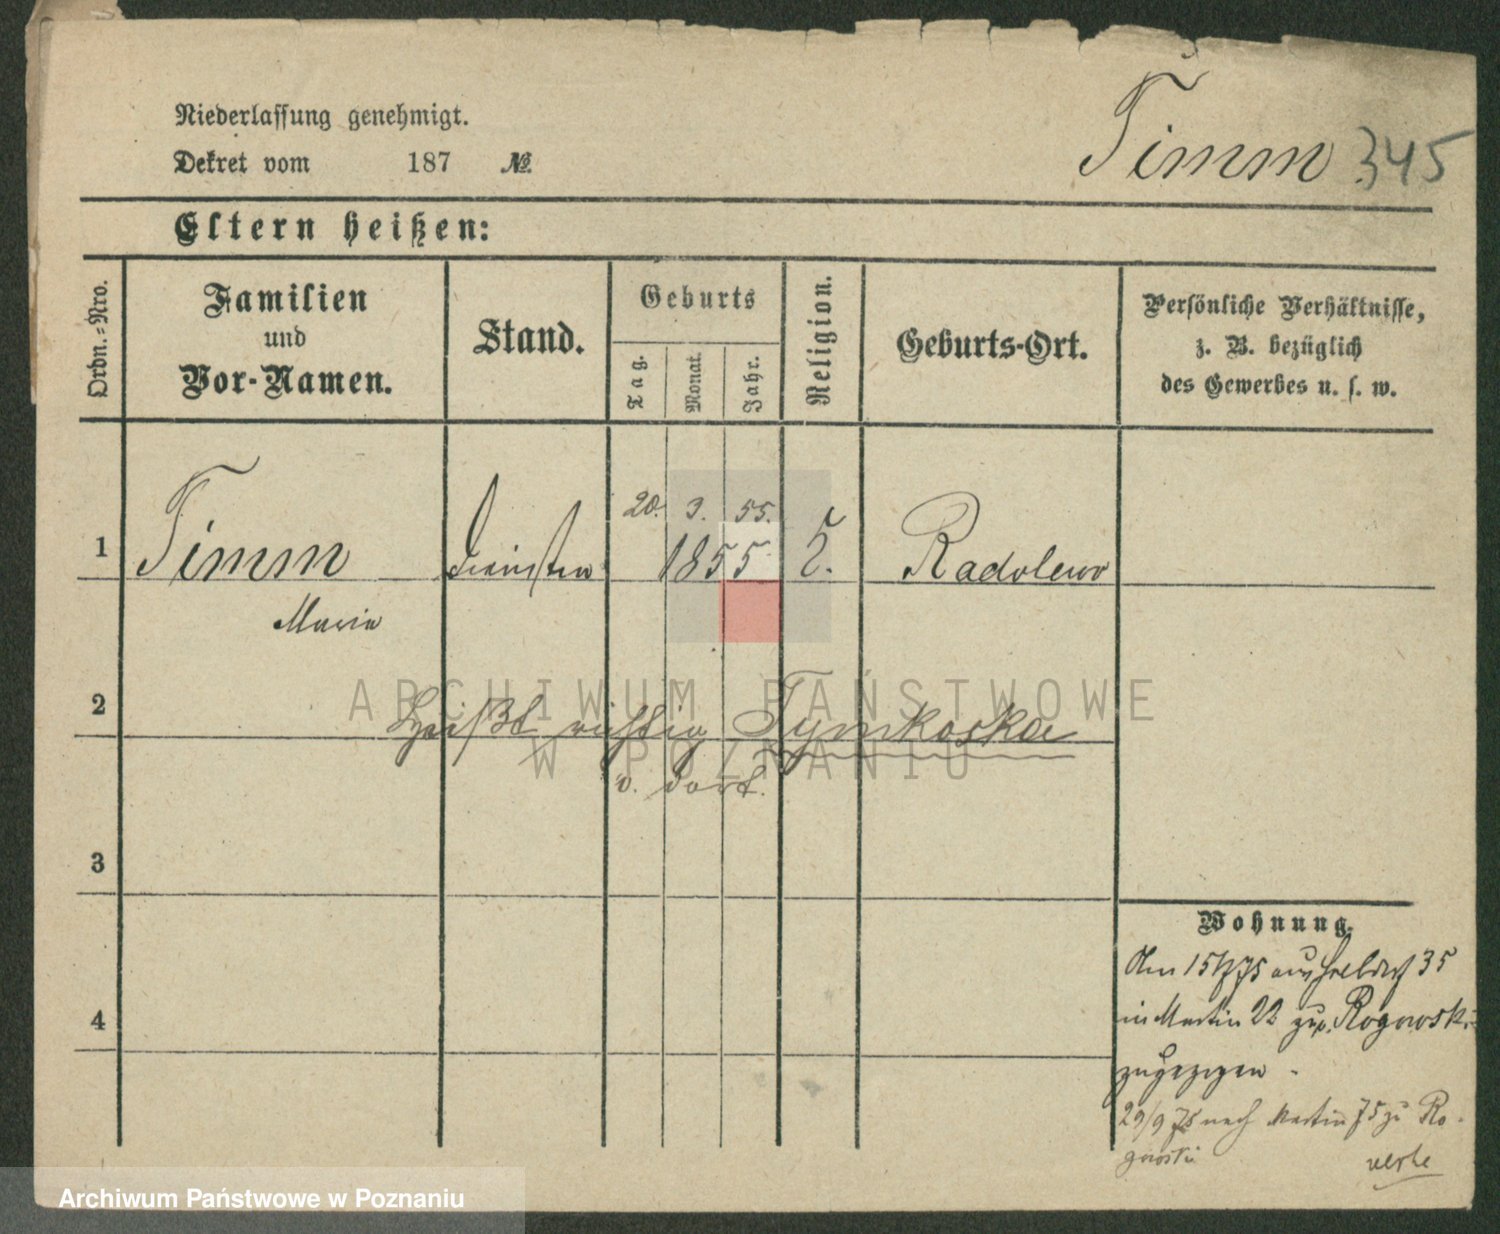 Niederlassung genehmigt.
Dekret vom 187 №
Timm 345
Eltern heißen:
Ordn.-Nro.
Familien
und
Vor-Namen.
Stand.
Geburts
Tag.
Monat.
Jahr.
Religion.
Geburts-Ort.
Persönliche Verhältnisse,
z. B. bezüglich
des Gewerbes u. s. w.
20. 3. 55.
1 Timm 1855 Radolewo
Maria
2 Heißt richtig Tymkoska
v. dort.
3
Wohnung.
Am 35
in Martin 22 Rogowski
4
zugezogen.
29/9 75 nach Martin 75 zu Ro-
gowski
ARCHIWUM PAŃSTWOWE
W POZNANIU
Archiwum Państwowe w Poznaniu